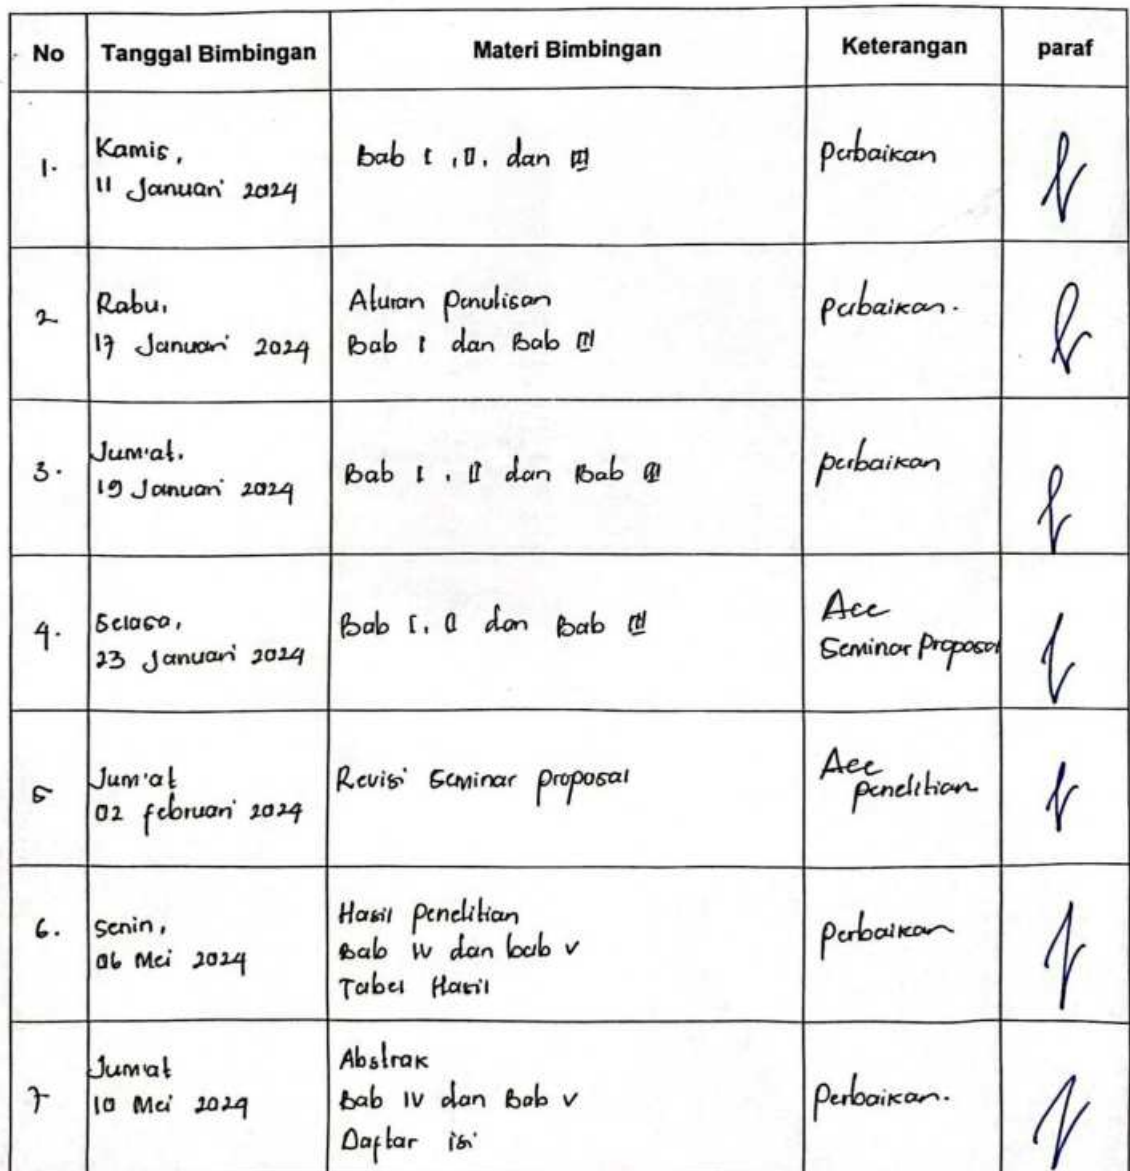 No Tanggal Bimbingan Materi Bimbingan Keterangan paraf
1. Kamis, 11 Januari 2024 Bab I, II, dan III Perbaikan
2 Rabu, 17 Januari 2024 Aturan Penulisan Perbaikan.
Bab I dan Bab III
3. Jum'at, 19 Januari 2024 Bab I, II dan Bab III Perbaikan
4. Selasa, 23 Januari 2024 Bab I, II dan Bab III Acc Seminar Proposal
5 Jum'at 02 februari 2024 Revisi Seminar Proposal Acc Penelitian
6. Senin, 06 Mei 2024 Hasil Penelitian Perbaikan
Bab IV dan bab V
Tabel Hasil
7 Jum'at 10 Mei 2024 Abstrak Perbaikan.
Bab IV dan Bab V
Daftar isi